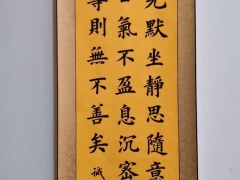 先默坐靜思隨意
口氣不盈息沉密
尊則無不善矣
誠